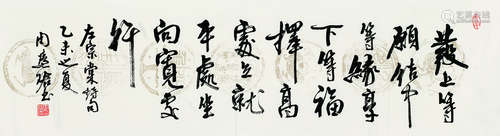 發上等
願結中
等緣享
下等福
擇高
處立就
平處坐
向寬處
行
左宗棠詩句
乙未之夏